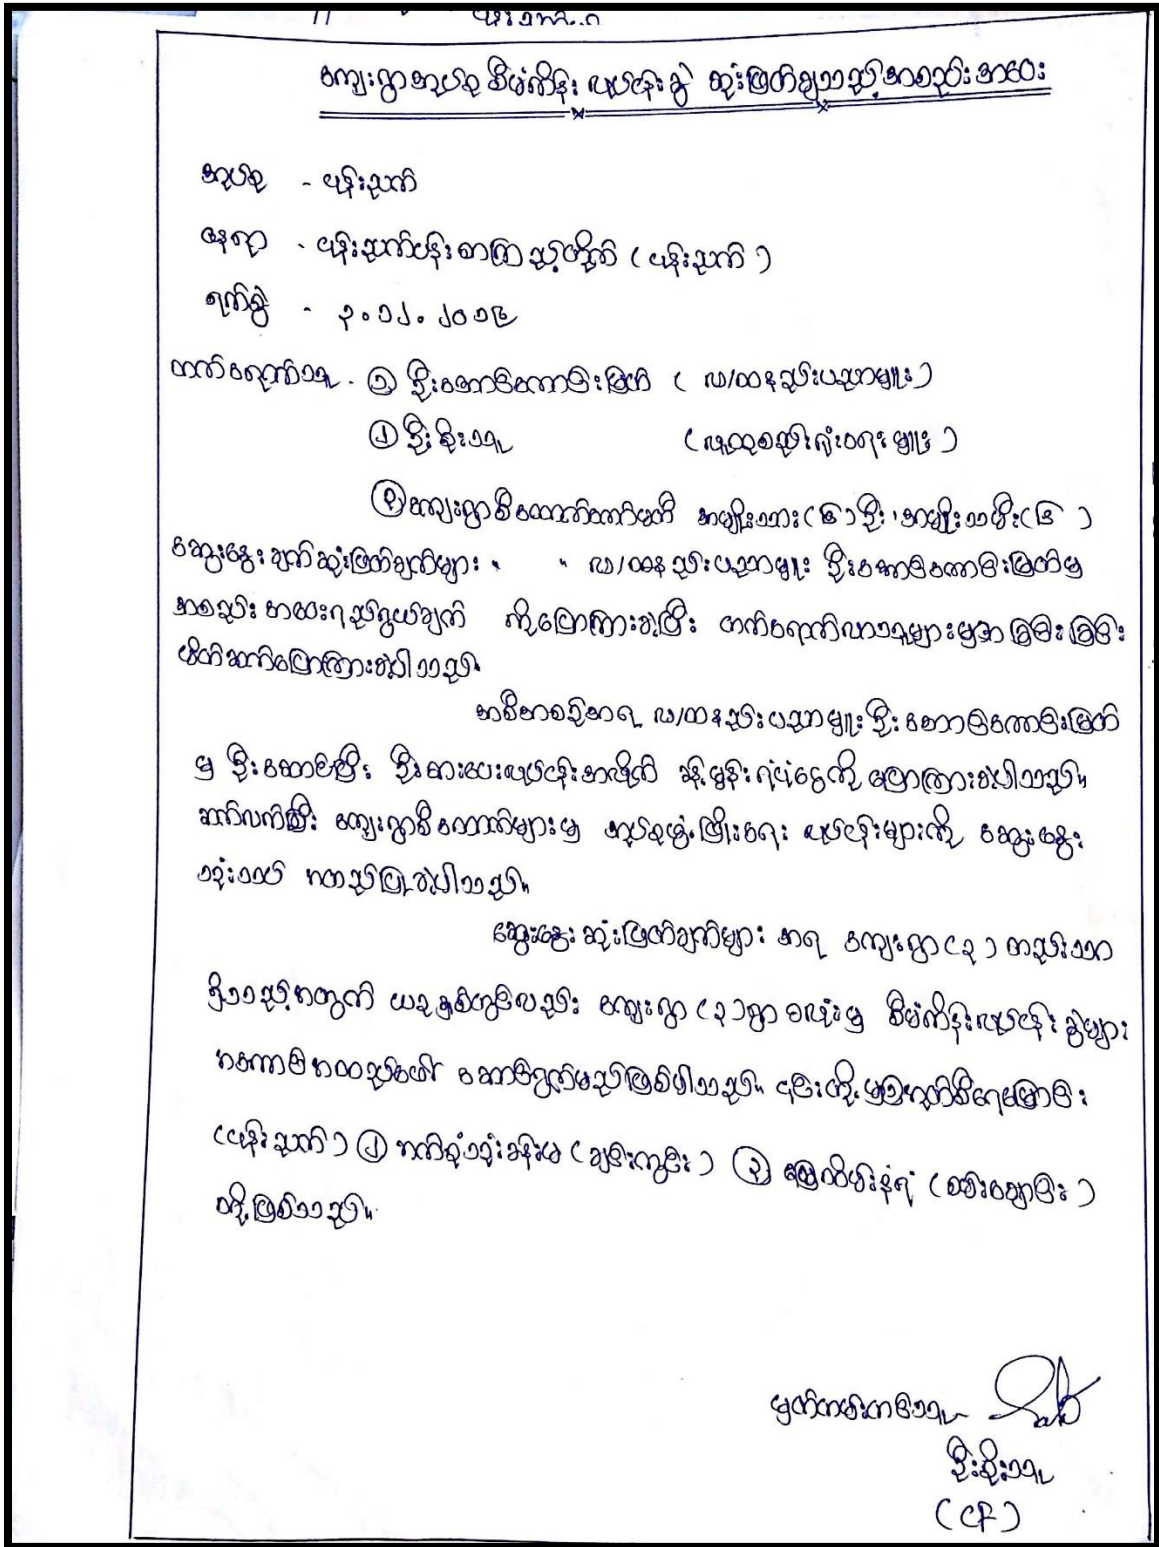 ကျေးရွာအုပ်စု စီမံကိန်း လုပ်ငန်းခွဲ ဆုံးဖြတ်ချသည့်အစည်းအဝေး
အုပ်စု - ပုန်းညက်
နေရာ - ပုန်းညက်ပန်းစာကြည့်တိုက် (ပုန်းညက်)
ရက်စွဲ - ၃.၁၂.၂၀၁၆
တက်ရောက်သူ - ၁ ဦးအောင်ကောင်းမြတ် (လ/ထနည်းပညာမှူး)
၂ ဦးစိုးသူ (လူထုစည်းရုံးရေးမှူး)
၃ ကျေးရွာစီထောက်ကော်မတီ အမျိုးသား(၆)ဦး၊ အမျိုးသမီး(၆)
ဆွေးနွေးချက်ဆုံးဖြတ်ချက်များ - " လ/ထနည်းပညာမှူး ဦးအောင်ကောင်းမြတ်မှ
အစည်းအဝေးရည်ရွယ်ချက် ကိုပြောကြားခဲ့ပြီး တက်ရောက်လာသူများမှအခြင်းခြင်း
မိတ်ဆက်ပြောကြားခဲ့ပါသည်။
အစီအစဉ်အရ လ/ထနည်းပညာမှူး ဦးအောင်ကောင်းမြတ်
မှ ဦးဆောင်ပြီး ဦးစားပေးလုပ်ငန်းအလိုက် ခန့်မှန်းရံပုံငွေကို ပြောကြားခဲ့ပါသည်။
ဆက်လက်ပြီး ကျေးရွာစီထောက်များမှ အုပ်စုဖွံ့ဖြိုးရေး လုပ်ငန်းများကို ဆွေးနွေး
သုံးသပ် အတည်ပြုခဲ့ပါသည်။
ဆွေးနွေးဆုံးဖြတ်ချက်များ အရ ကျေးရွာ(၃)တည်းသာ
ရှိသည့်အတွက် ယခုနှစ်တွင်လည်း ကျေးရွာ(၃)ရွာစလုံးမှ စီမံကိန်းလုပ်ငန်းခွဲများ
အကောင်အထည်ဖော် ဆောင်ရွက်မည်ဖြစ်ပါသည်။ ၎င်းတို့မှာ
(ပုန်းညက်) ၂ ဘက်စုံသုံးခန်းမ (ချင်းကွင်း) ၃ မြေထိမ်းနံရံ (စမ်းချောင်း)
တို့ဖြစ်သည်။
မှတ်တမ်းတင်သူ
ဦးစိုးသူ
(CF)